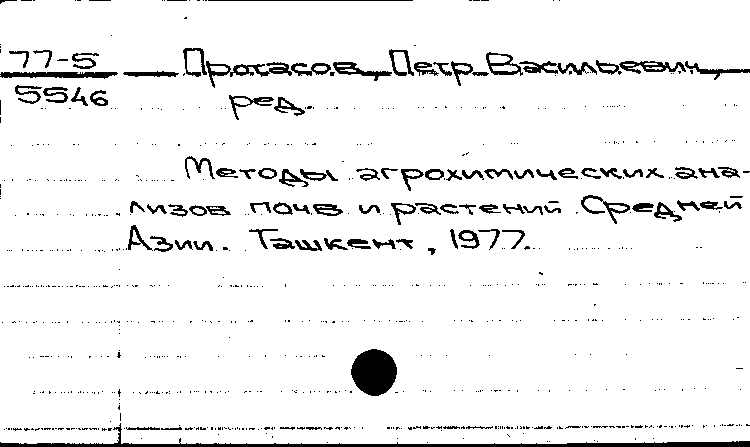 77-5 Протасов, Петр Васильевич,
5546 ред.
Методы агрохимических ана-
лизов почв и растений Средней
Азии. Ташкент, 1977.